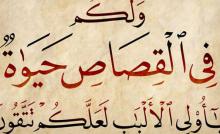 وَلَكُمْ
فِى ٱلْقِصَاصِ حَيَوٰةٌ
يَٰٓأُو۟لِى ٱلْأَلْبَٰبِ لَعَلَّكُمْ تَتَّقُونَ